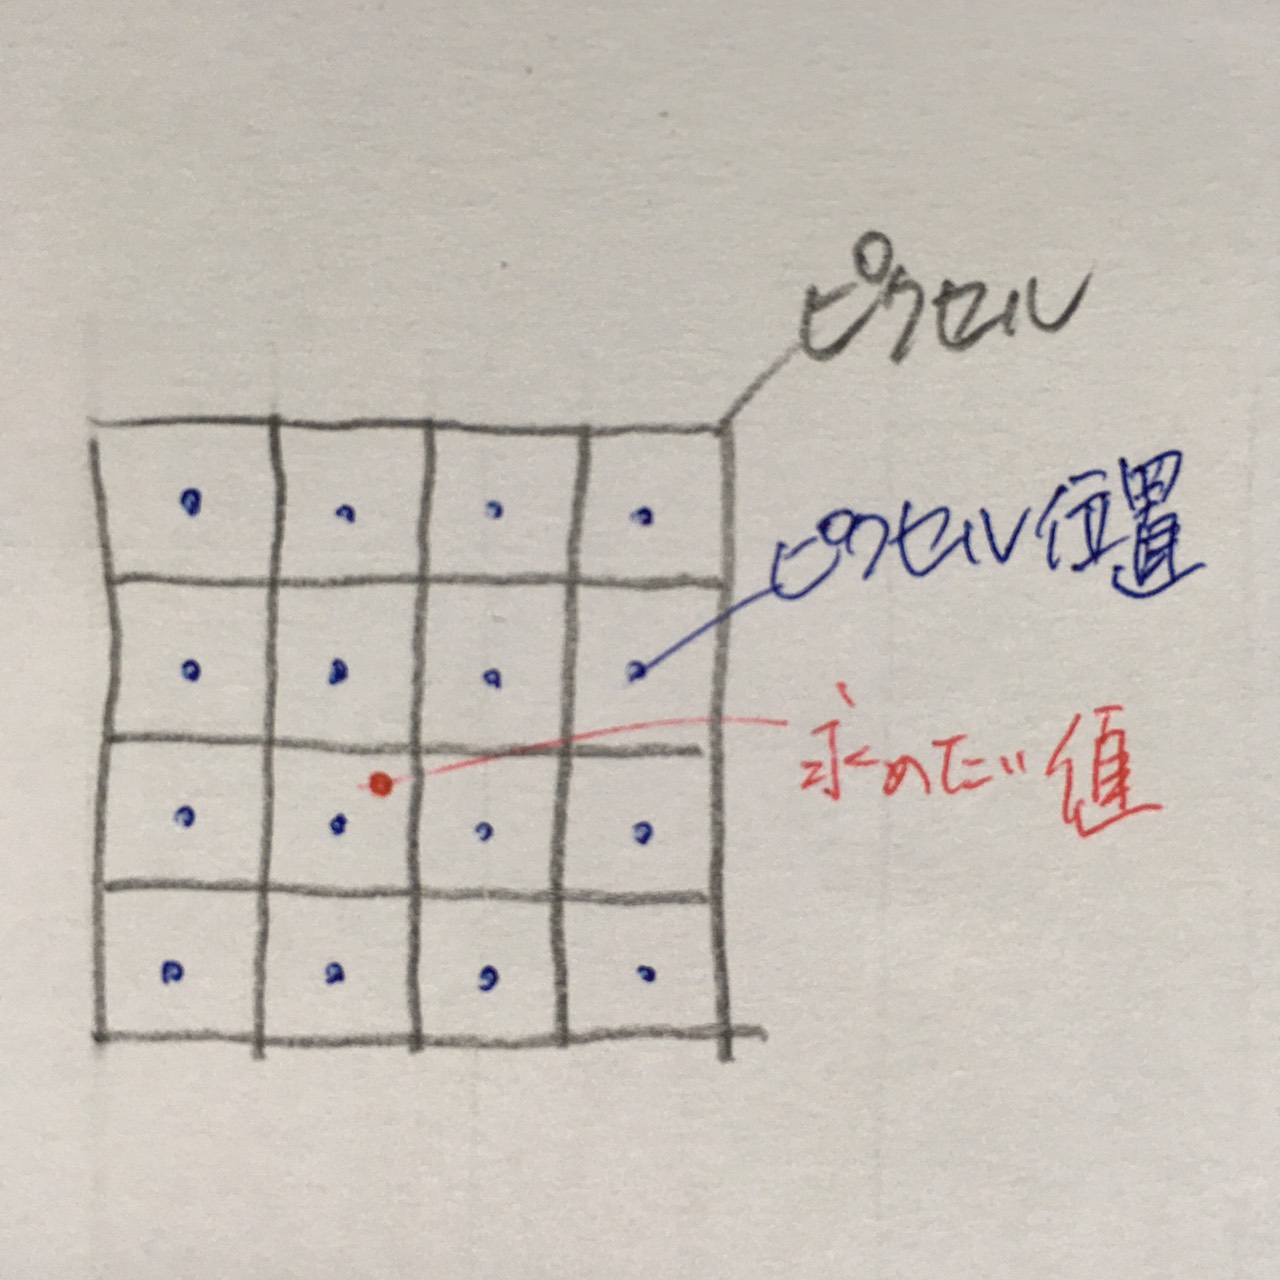 ピクセル
ピクセル位置
求めたい値